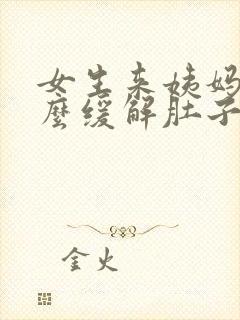 女生来姨妈
麼缓解肚子
金火